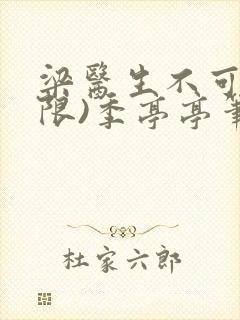 梁醫生不可
限)季亭亭筆
杜家六郎